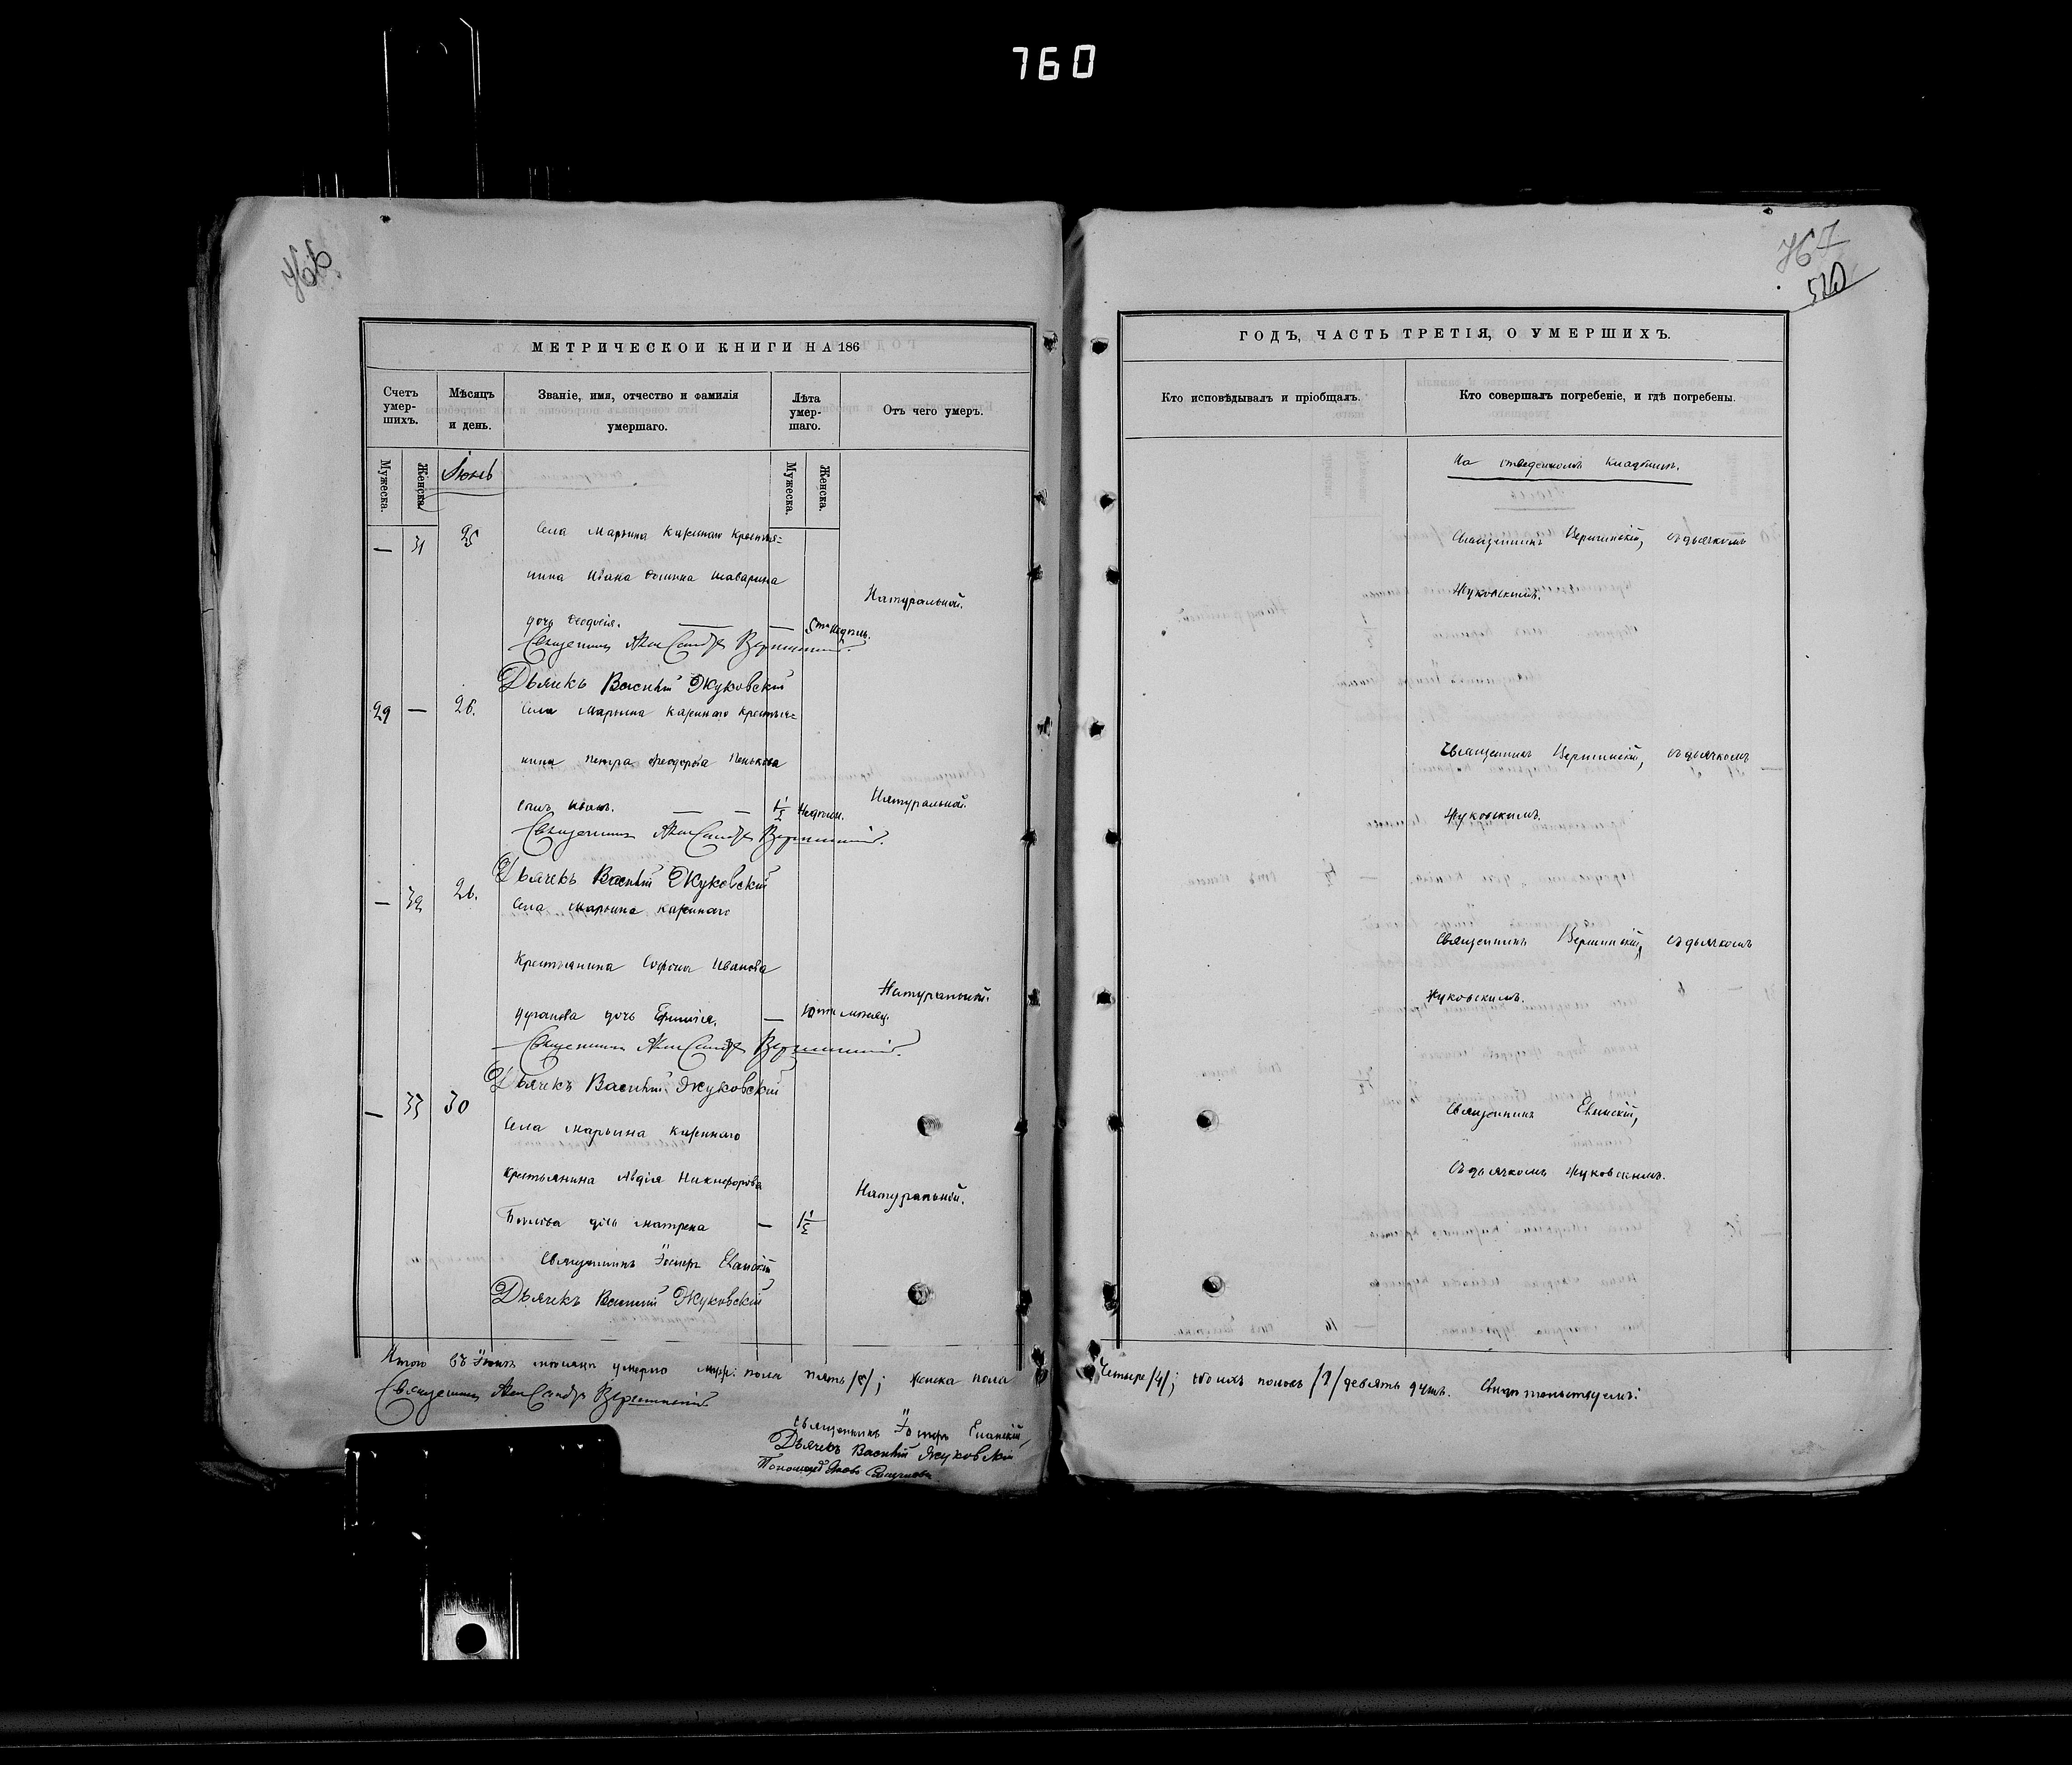 760
766
МЕТРИЧЕСКОЙ КНИГИ НА 186
Счетъ умер-шихъ.
Мѣсяцъ и день.
Званіе, имя, отчество и фамилія умершаго.
Лѣта умер-шаго.
Отъ чего умеръ.
Мужеска.
Женска.
Мужеска.
Женска.
Іюнь
— 31 25 Села Марьина казеннаго крестья=
нина Ивана
Натуральной.
дочь Ѳеодосія. — — 5ти недѣль.
Священникъ Александръ Вершинскій.
Дьячекъ Василій Жуковскій
29 — 26. Села Марьина казеннаго крестья=
нина Петра Ѳеодорова Пенькова
Натуральной.
сынъ Иванъ. — — 1½ недѣли.
Священникъ Александръ Вершинскій.
Дьячекъ Василій Жуковскій
— 32 26. Села Марьина казеннаго
Крестьянина Софона Иванова
Натуральной.
дочь — 10ти мѣсяц.
Священникъ Александръ Вершинскій.
Дьячекъ Василій Жуковскій
— 33 30
Села Марьина казеннаго
крестьянина Авдія Никифорова
Натуральной.
дочь Матрена — 1½
Священникъ Іосифъ
Дьячекъ Василій Жуковскій
Итого въ Іюнѣ мѣсяцѣ умерло муж: пола пять /5/; женска пола
Священникъ Александръ Вершинскій
Священникъ Іосифъ
Дьячекъ Василій Жуковскій
Пономарь Яковъ
767
520
ГОДЪ, ЧАСТЬ ТРЕТІЯ, О УМЕРШИХЪ.
Кто исповѣдывалъ и пріобщалъ.
Кто совершалъ погребеніе, и гдѣ погребены.
На отведенномъ кладбищѣ.
Священникъ Вершинскій, съ дьячкомъ
Жуковскимъ.
Священникъ Вершинскій, съ дьячкомъ
Жуковскимъ.
Священникъ Вершинскій, съ дьячкомъ
Жуковскимъ.
Священникъ
съ дьячкомъ Жуковскимъ.
Четыре /4/; обоихъ половъ /9/ девять душъ. Свидѣтельствуемъ: